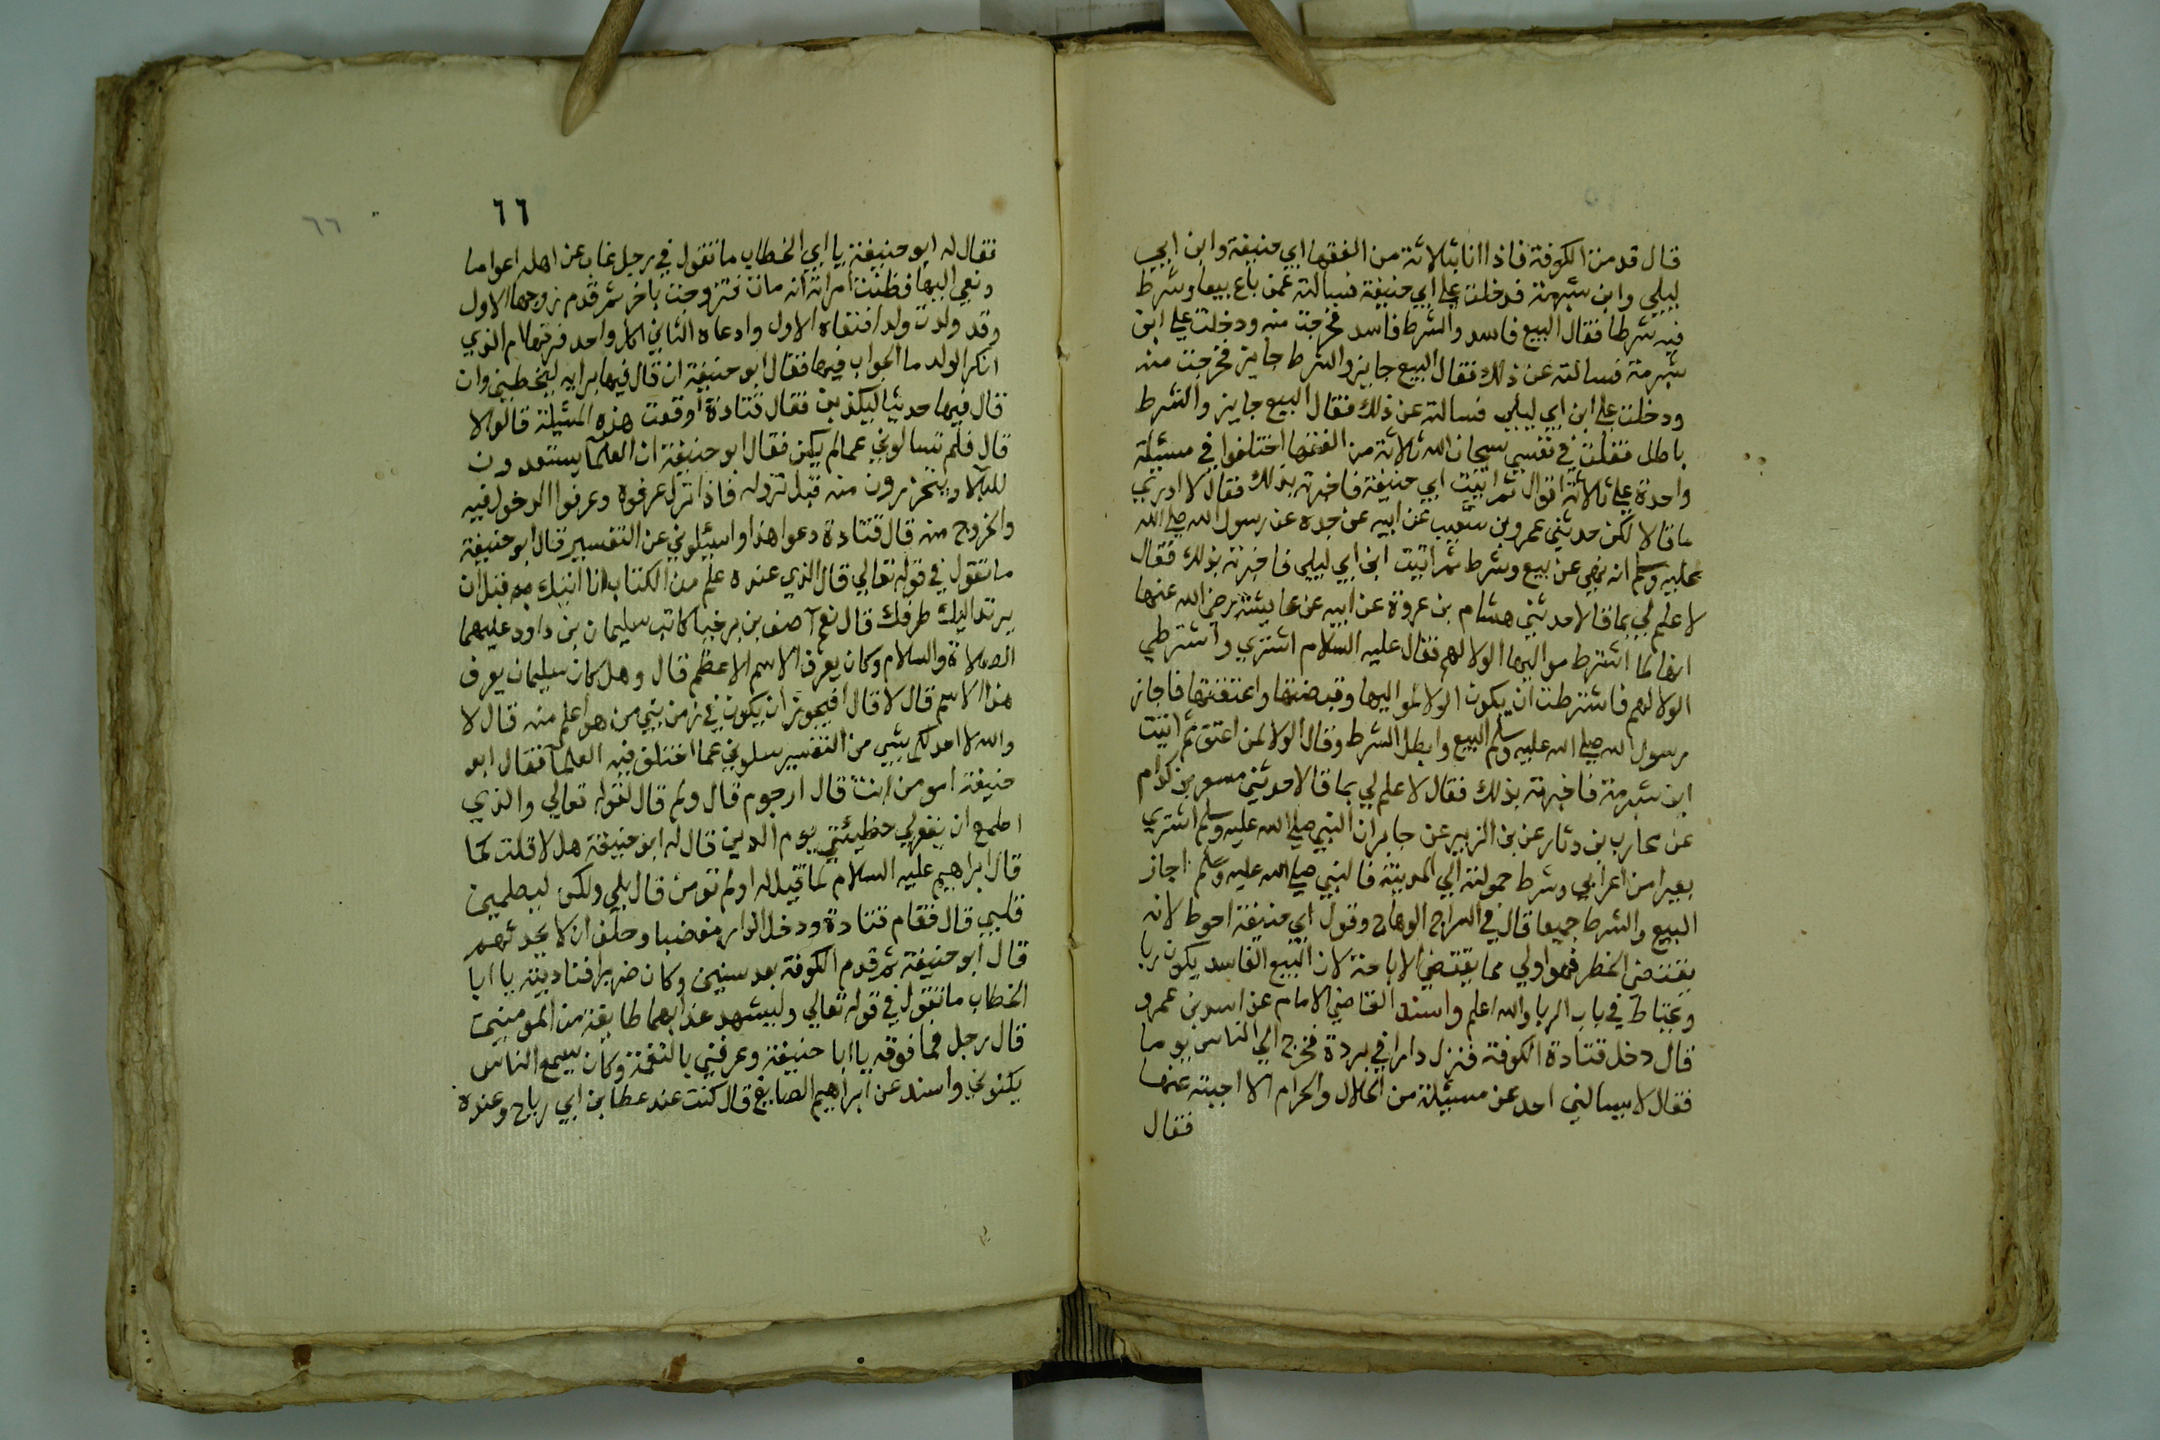 قال قدمت الكوفة فاذا انا بثلاثة من الفقها ابي حنيفة وابن ابي
ليلي وابن شبرمة فدخلت علي ابي حنيفة فسالته عمن باع بيعا وشرط
فيه شرطا فقال البيع فاسد والشرط فاسد فخرجت منه ودخلت علي ابن
شبرمة فسالته عن ذلك فقال البيع جايز والشرط جايز فخرجت منه
ودخلت علي ابن ابي ليلي فسالته عن ذلك فقال البيع جايز والشرط
باطل فقلت في نفسي سبحان الله ثلاثة من الفقها اختلفوا في مسئلة
واحدة علي ثلاثة اقوال ثم اتيت ابي حنيفة فاخبرته بذلك فقال لا ادري
ما قالا لكن حدثني عمرو بن شعيب عن ابيه عن جده عن رسول الله صلي الله
عليه وسلم انه نهي عن بيع وشرط ثم اتيت ابن ابي ليلي فاخبرته بذلك فقال
لا علم لي بما قالا حدثني هشام بن عروة عن ابيه عن عايشة رضي الله عنها
انها لما اشترط مواليها الولا لهم فقال عليه السلام اشتري واشترطي
الولا لهم فاشترطت ان يكون الولا لمواليها وقبضتها واعتقتها فاجاز
رسول الله صلي الله عليه وسلم البيع وابطل الشرط وقال الولا لمن اعتق ثم اتيت
ابن شبرمة فاخبرته بذلك فقال لا علم لي بما قالا حدثني مسعر بن كدام
عن محارب بن دثار عن بن الزبير عن جابر ان النبي صلي الله عليه وسلم اشتري
بعيرا من اعرابي وشرط حمولته الي المدينة فالنبي صلي الله عليه وسلم اجاز
البيع والشرط جميعا قال في السراج الوهاج وقول ابي حنيفة احوط لانه
يقتضي الخطر فهو اولي مما يقتضي الاباحة لان البيع الفاسد يكون ربا
ويحتاط في باب الربا والله اعلم واسند القاضي الامام عن اسد بن عمرو
قال دخل قتادة الكوفة فنزل دار ابي بردة فخرج الي الناس يوما
فقال لا يسالني احد عن مسئيلة من الحلال والحرام الا اجبته عنها
فقال
٦٦
٦٦
فقال له ابو حنيفة يا ابي الخطاب ما تقول في رجل غاب عن اهله اعواما
ونعي اليها فظنت امراته انه مات فتزوجت باخر ثم قدم زوجها الاول
وقد ولدت ولدا فنفاه الاول وادعاه الثاني اكل واحد قذفها ام الذي
انكر الولد ما الجواب فيها فقال ابو حنيفة ان قال فيها برايه ليخطين وان
قال فيها حديثا ليكذبن فقال قتادة اوقعت هذه المسئيلة قالوا لا
قال فلم تسالوني عما لم يكن فقال ابو حنيفة ان العلما يستعدون
للبلا ويتحرزون منه قبل نزوله فاذا نزل عرفوه وعرفوا الدخول فيه
والخروج منه قال قتادة دعوا هذا واسئلوني عن التفسير قال ابو حنيفة
ما تقول في قوله تعالي قال الذي عنده علم من الكتاب انا اتيك به قبل ان
يرتد اليك طرفك قال نعم آصف بن برخيا كاتب سليمان بن داود عليهما
الصلاة والسلام وكان يعرف الاسم الاعظم قال وهل كان سليمان يعرف
هذا الاسم قال لا قال افيجوز ان يكون في زمن نبي من هو اعلم منه قال لا
والله لا احدثكم بشي من التفسير سلوني عما اختلف فيه العلما فقال ابو
حنيفة امومن انت قال ارجوم قال ولم قال لقوله تعالي والذي
اطمع ان يغفر لي خطيئتي يوم الدين قال له ابو حنيفة هل لا قلت كما
قال ابراهيم عليه السلام لما قيل له اولم تومن قال بلي ولكن ليطمين
قلبي قال فقام قتادة ودخل الدار مغضبا وحلف ان لا يحدثهم
قال ابو حنيفة ثم قدم الكوفة بعد سنين وكان ضريرا فناديته يا ابا
الخطاب ما تقول في قوله تعالي وليشهد عذابهما طايفة من المومنين
قال رجل فما فوقه يا ابا حنيفة وعرفني بالنغمة وكان يسمع الناس
يكنوني واسند عن ابراهيم الصايغ قال كنت عند عطا بن ابي رباح وعنده